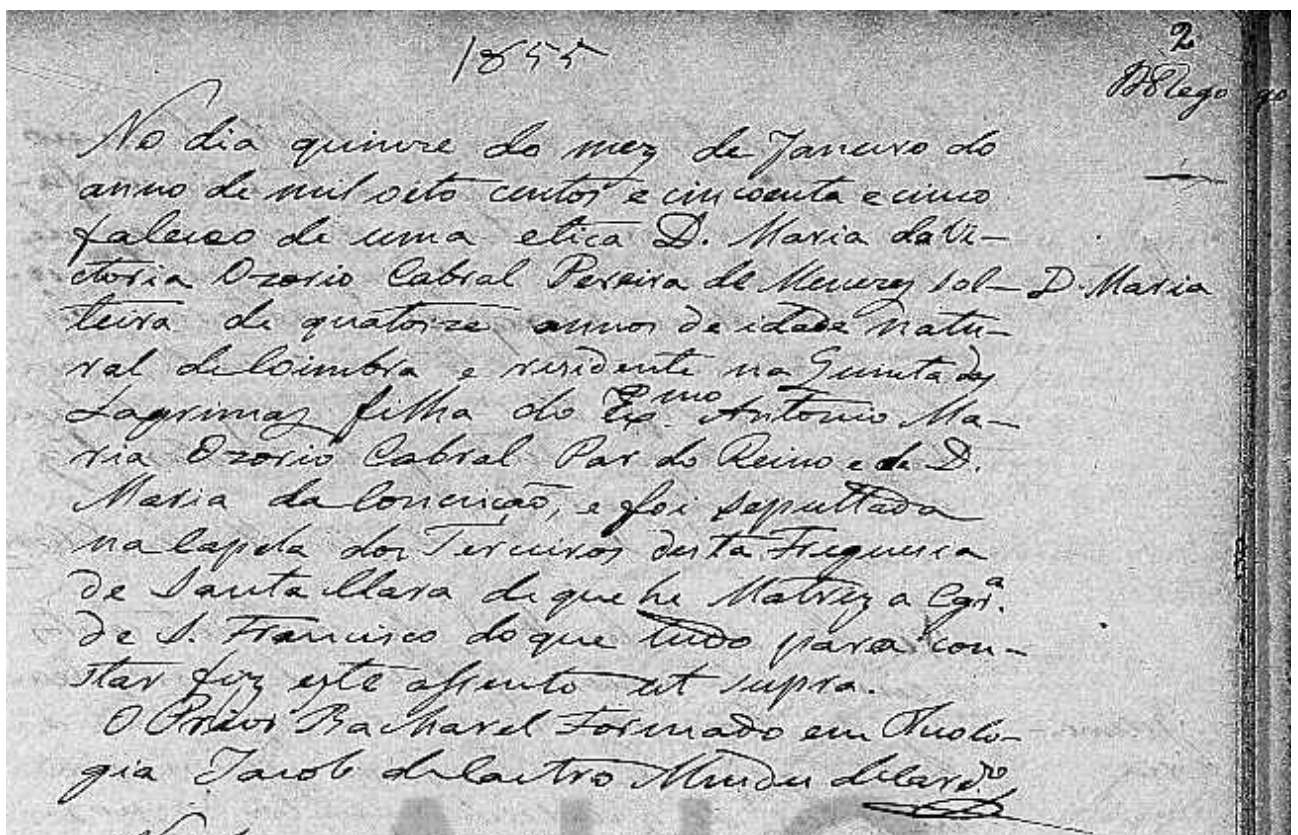 1855
2
Botelho
No dia quinze do mez de Janeiro do
anno de mil oito centos e cincoenta e cinco
faleceo de uma etica D. Maria da Vi-
ctoria Ozorio Cabral Pereira de Menezes sol-
D. Maria
teira de quatorze annos de idade natu-
ral de Coimbra e residente na Quinta das
Lagrimas filha do Exmo. Antonio Ma-
ria Ozorio Cabral Par do Reino e de D.
Maria da Conceição, e foi sepultada
na Capela dos Terceiros desta Freguesia
de Santa Clara de que he Matriz a Egrª.
de S. Francisco do que tudo para con-
star fiz este assento ut supra.
O Prior Bacharel Formado em Theolo-
gia Jacob de Castro Mendes de Cardº